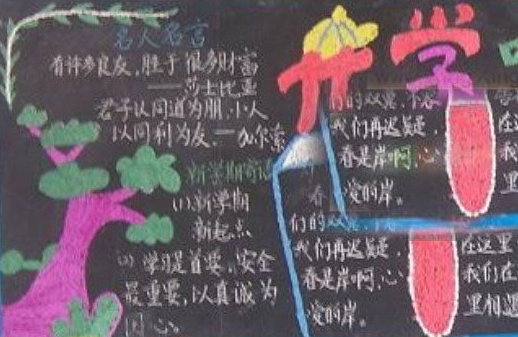 名人名言
有许多良友，胜于很多财富
——莎士比亚
君子认同道为朋，小人
以同利为友。——加尔索
开学
新学期寄语
(1)新学期
新起点
(2)学习是首要，安全
最重要，以真诚为
同心。
们的双
我们再迟疑，
春是岸啊，心
爱的岸。
们的双
我们再迟疑，
春是岸啊，心
爱的岸。
在这里
我们在
里相遇